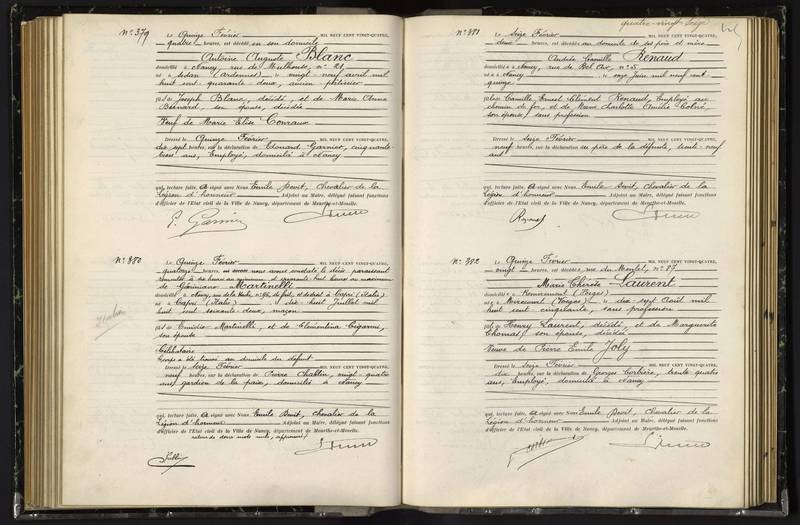 N° 379
Le Quinze Février MIL NEUF CENT VINGT-QUATRE,
quatre heures, est décédé en son domicile
Antoine Auguste Blanc
domicilié à Nancy, rue de Mulhouse, n° 21
né à Sedan (Ardennes) le vingt-neuf avril mil
huit cent quarante deux, ancien pâtissier
fils de Joseph Blanc, décédé, et de Marie Anna
Bernard, son épouse, décédée
Veuf de Marie Elise Conraux
Dressé le Quinze Février MIL NEUF CENT VINGT-QUATRE,
dix sept heures, sur la déclaration de Edouard Garnier, cinquante
trois ans, Employé, domicilié à Nancy
qui, lecture faite, a signé avec Nous Emile Devit, Chevalier de la
Légion d'honneur Adjoint au Maire, délégué faisant fonctions
d'Officier de l'Etat civil de la Ville de Nancy, département de Meurthe-et-Moselle.
E. Garnier
N° 380
Italien
Le Quinze Février MIL NEUF CENT VINGT-QUATRE,
quatorze heures, nous avons constaté le décès paraissant
remonter à
de Géminiano Martinelli
domicilié à Nancy, rue de la
né à Capri (Italie) le dix huit Juillet mil
huit cent soixante deux, maçon
fils de Emidio Martinelli, et de Clémentina Cigarini,
son épouse
Célibataire
Corps a été trouvé au domicile du défunt
Dressé le Seize Février MIL NEUF CENT VINGT-QUATRE,
neuf heures, sur la déclaration de Pierre Chablin, vingt-quatre
ans, gardien de la paix, domicilié à Nancy
qui, lecture faite, a signé avec Nous Emile Devit, Chevalier de la
Légion d'honneur Adjoint au Maire, délégué faisant fonctions
d'Officier de l'Etat civil de la Ville de Nancy, département de Meurthe-et-Moselle.
quatre-vingt-seize
N° 381
Le Seize Février MIL NEUF CENT VINGT-QUATRE,
deux heures, est décédée au domicile de ses père et mère
Andrée Camille Renaud
domiciliée à Nancy, rue de Bel Air, n° 5
née à Nancy le onze Juin mil neuf cent
quinze
fille de Camille Ernest Clément Renaud, Employé au
chemin de fer, et de Marie Charlotte Amélie
son épouse, sans profession
Dressé le Seize Février MIL NEUF CENT VINGT-QUATRE,
neuf heures, sur la déclaration du père de la défunte, trente-neuf
ans
qui, lecture faite, a signé avec Nous Emile Devit, Chevalier de la
Légion d'honneur Adjoint au Maire, délégué faisant fonctions
d'Officier de l'Etat civil de la Ville de Nancy, département de Meurthe-et-Moselle.
N° 382
Le Quinze Février MIL NEUF CENT VINGT-QUATRE,
vingt heures, est décédée, rue du Montet, n° 87
Marie Thérèse Laurent
domiciliée à Remiremont (Vosges)
née à Remiremont (Vosges) le dix sept Août mil
huit cent cinquante, sans profession
fille de Henry Laurent, décédé, et de Marguerite
Thomas, son épouse, décédée
Veuve de Pierre Emile Joly
Dressé le Seize Février MIL NEUF CENT VINGT-QUATRE,
dix heures, sur la déclaration de Georges Corbière, trente quatre
ans, Employé, domicilié à Nancy
qui, lecture faite, a signé avec Nous Emile Devit, Chevalier de la
Légion d'honneur Adjoint au Maire, délégué faisant fonctions
d'Officier de l'Etat civil de la Ville de Nancy, département de Meurthe-et-Moselle.